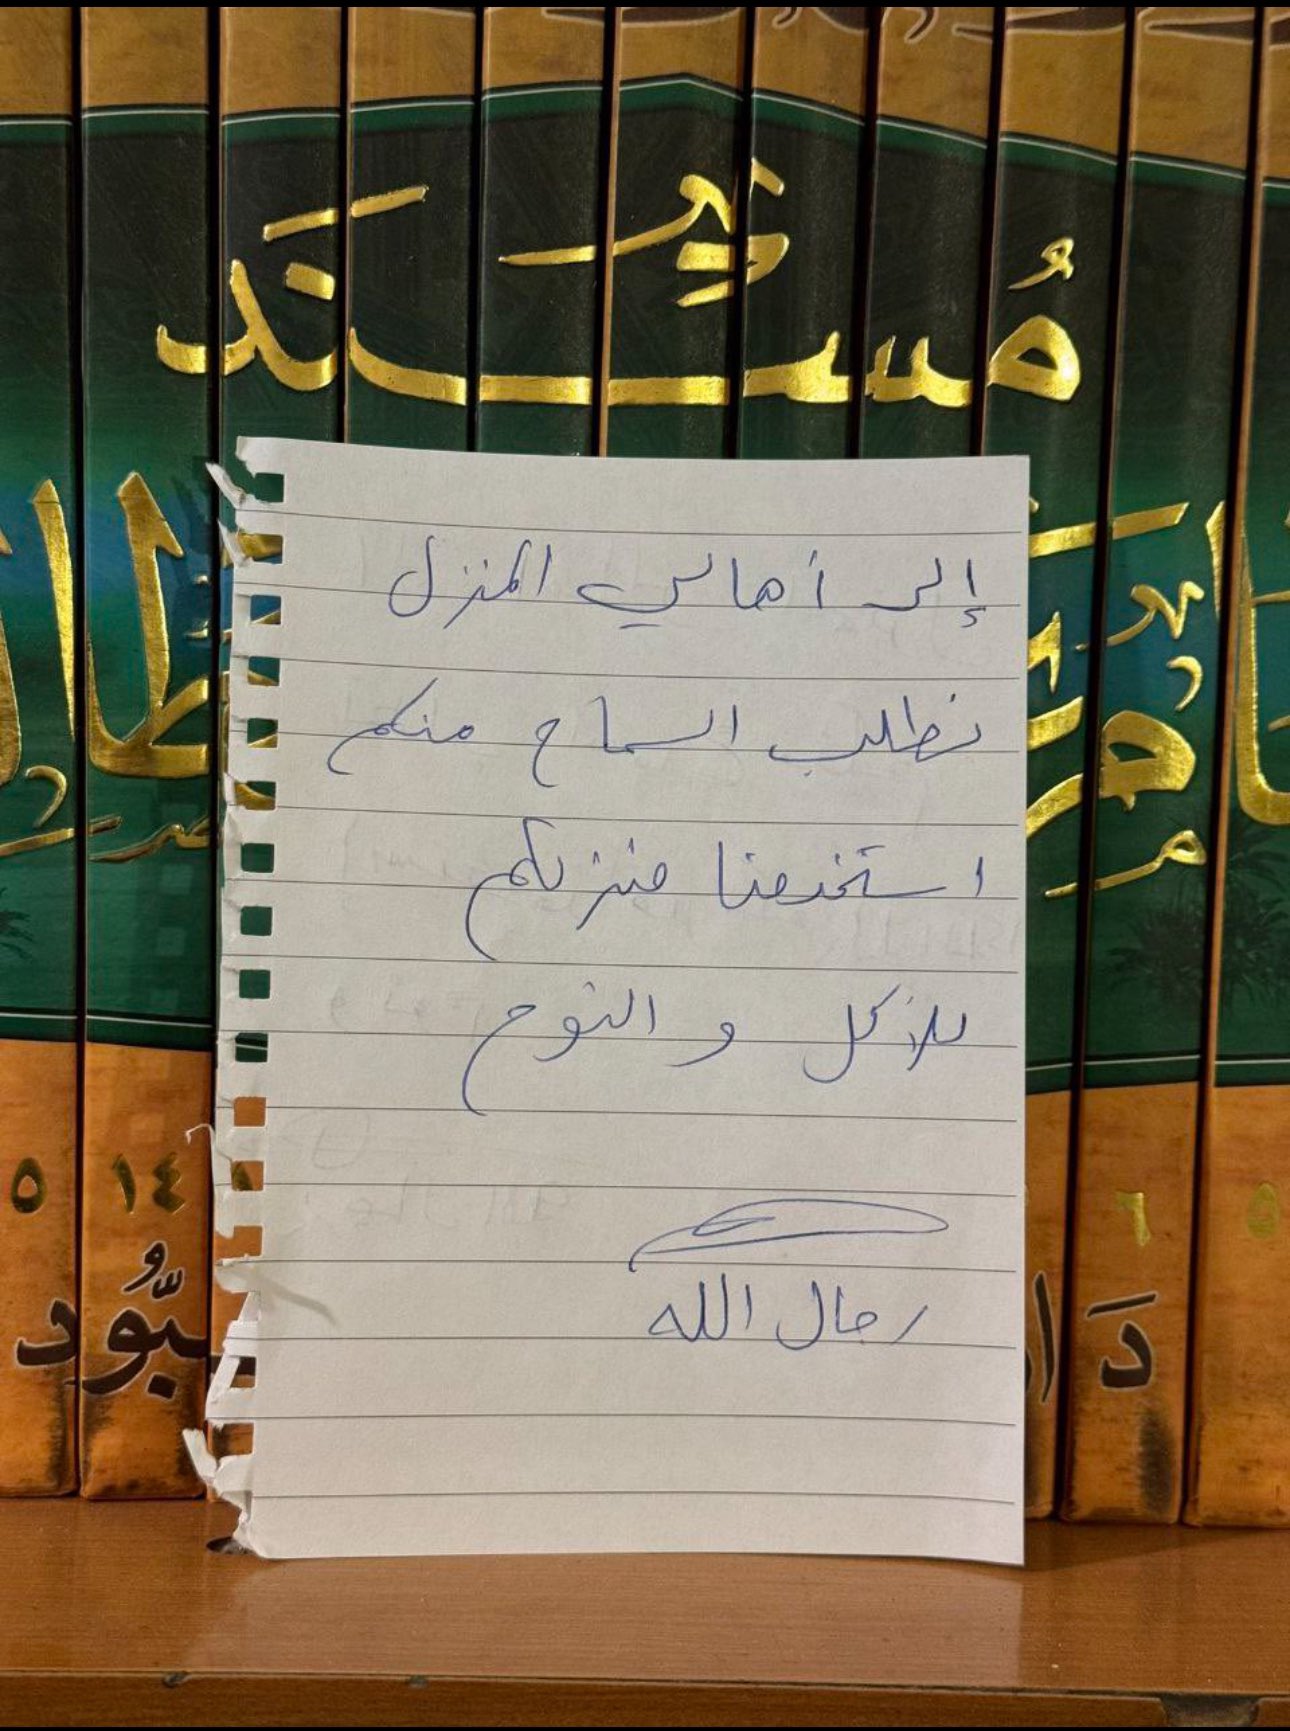 مُسْنَد
إلى أهالي المنزل
نطلب السماح منكم
استخدمنا منزلكم
للأكل و النوم
رجال الله
٥
١٤
٦
٥